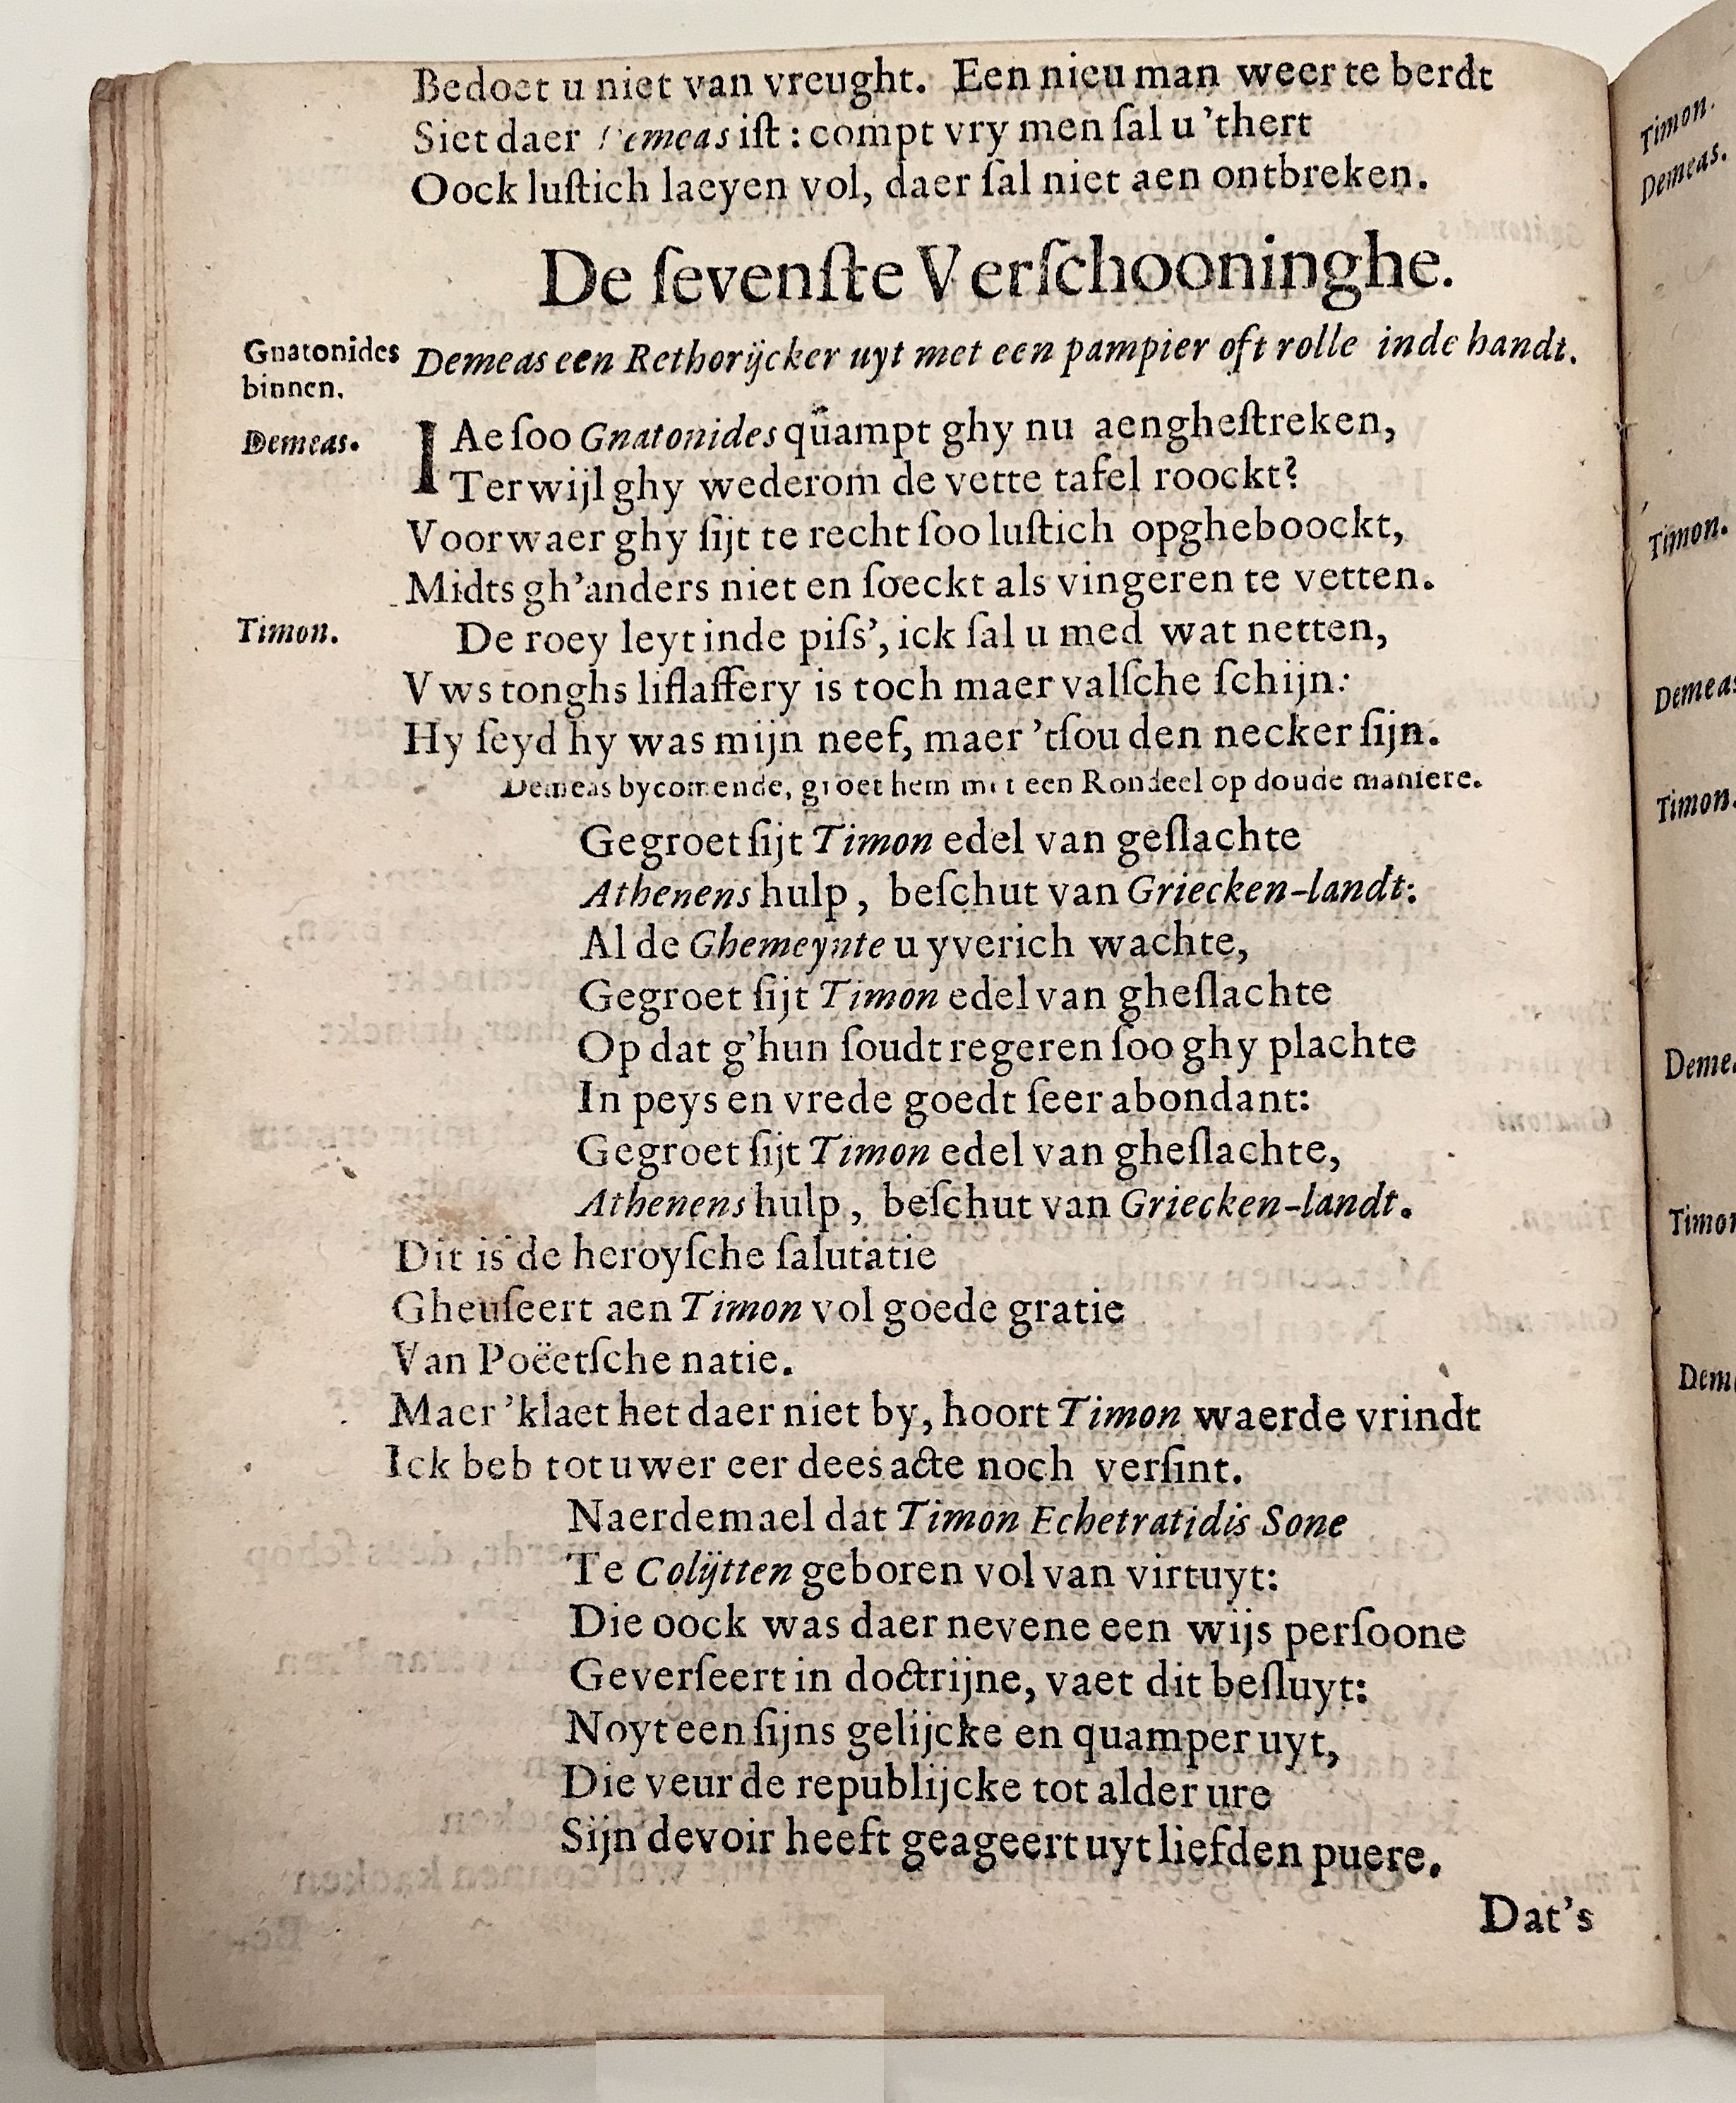 Bedoet u niet van vreught. Een nieu man weer te berdt
Siet daer Demeas iſt : compt vry men ſal u 'thert
Oock luſtich laeyen vol, daer ſal niet aen ontbreken.
De ſevenſte Verſchooninghe.
Gnatonides
binnen.
Demeas een Rethorijcker uyt met een pampier oft rolle inde handt.
Demeas.
IAe ſoo Gnatonides quampt ghy nu aengheſtreken,
Terwijl ghy wederom de vette tafel roockt?
Voorwaer ghy ſijt te recht ſoo luſtich opgheboockt,
Midts gh'anders niet en ſoeckt als vingeren te vetten.
Timon.
De roey leyt inde piſs', ick ſal u med wat netten,
Vws tonghs liflaffery is toch maer valſche ſchijn:
Hy ſeyd hy was mijn neef, maer 'tſou den necker ſijn.
Demeas bycomende, groet hem met een Rondeel op doude maniere.
Gegroet ſijt Timon edel van geſlachte
Athenens hulp, beſchut van Griecken-landt:
Al de Ghemeynte u yverich wachte,
Gegroet ſijt Timon edel van gheſlachte
Op dat g'hun ſoudt regeren ſoo ghy plachte
In peys en vrede goedt ſeer abondant:
Gegroet ſijt Timon edel van gheſlachte,
Athenens hulp, beſchut van Griecken-landt.
Dit is de heroyſche ſalutatie
Gheuſeert aen Timon vol goede gratie
Van Poëetſche natie.
Maer 'klaet het daer niet by, hoort Timon waerde vrindt
Ick beb tot uwer eer dees acte noch verſint.
Naerdemael dat Timon Echetratidis Sone
Te Colijtten geboren vol van virtuyt:
Die oock was daer nevene een wijs perſoone
Geverſeert in doctrijne, vaet dit beſluyt:
Noyt een ſijns gelijcke en quamper uyt,
Die veur de republijcke tot alder ure
Sijn devoir heeft geageert uyt liefden puere.
Dat's
Timon.
Demeas.
Timon.
Demeas
Timon.
Deme
Timon
Dem